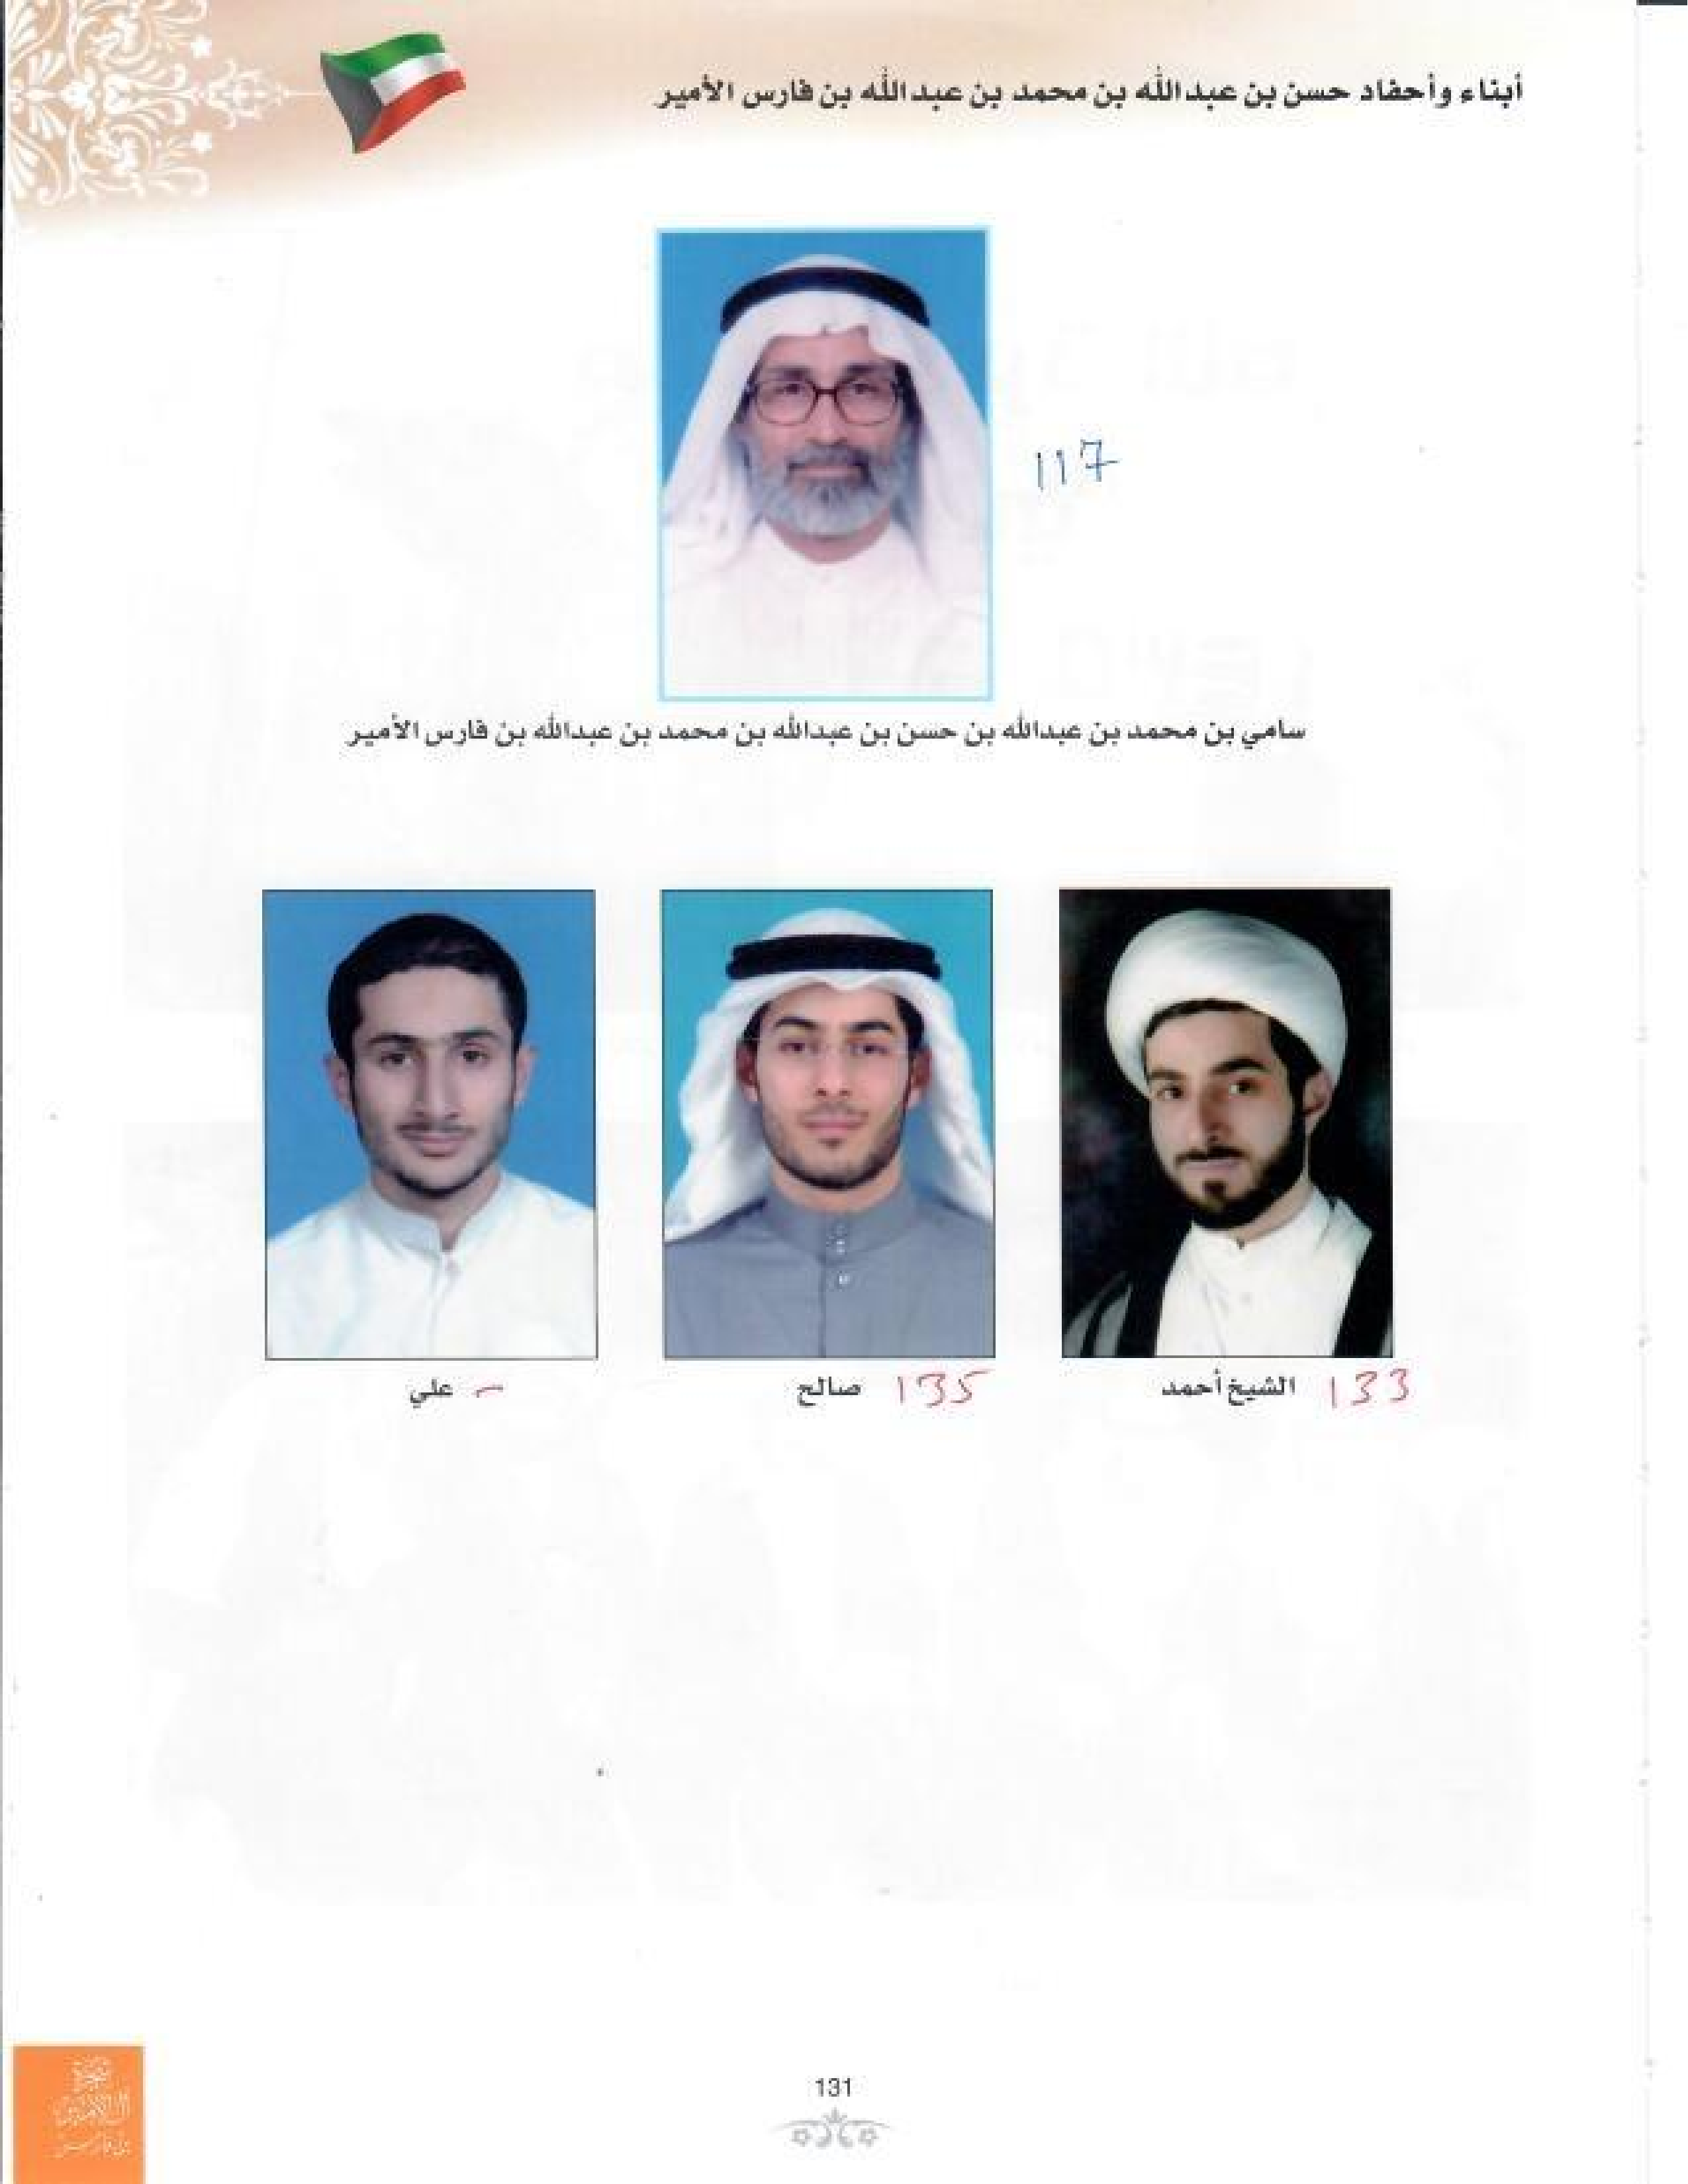 أبناء وأحفاد حسن بن عبدالله بن محمد بن عبدالله بن فارس الأمير
117
سامي بن محمد بن عبدالله بن حسن بن عبدالله بن محمد بن عبدالله بن فارس الأمير
الشيخ أحمد 133
صالح 135
علي -
131
شجرة
آل الأمير
بن فارس